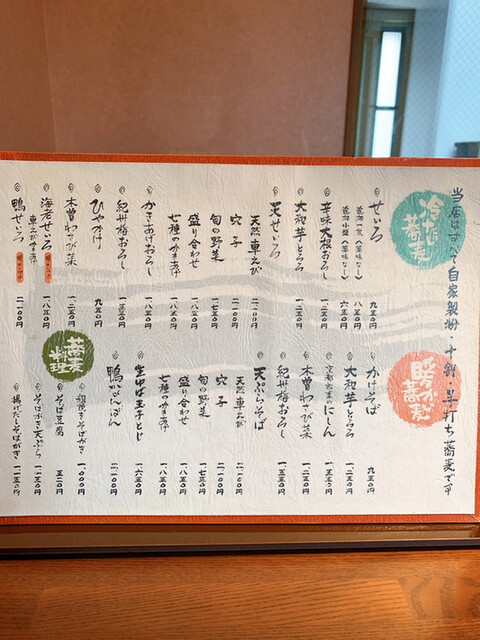 当店はすべて自家製粉・十割・手打ち蕎麦です
冷たい蕎麦
せいろ 九五〇円
蕎麦一束(薬味なし) 八五〇円
蕎麦小盤(薬味なし) 六五〇円
辛味大根おろし 一二五〇円
大和芋とろろ 一二五〇円
天せいろ
天然車えび 二一〇〇円
穴子 二一〇〇円
旬の野菜 一七五〇円
盛り合わせ 一八五〇円
七種のかきあげ 一八五〇円
かきあげおろし 一八五〇円
紀州梅おろし 一三五〇円
ひやかけ 九五〇円
木曽わさび菜 一二五〇円
海老せいろ 一八五〇円
車えびかきあげ
鴨せいろ 二一〇〇円
暖か蕎麦
かけそば 九五〇円
大和芋とろろ 一二五〇円
にしん 一五五〇円
木曽わさび菜 一二五〇円
紀州梅おろし 一三五〇円
天ぷらそば
天然車えび 二一〇〇円
穴子 二一〇〇円
旬の野菜 一七五〇円
盛り合わせ 一八五〇円
七種のかきあげ 一八五〇円
生ゆば玉子とじ 一六五〇円
鴨なんばん 二一〇〇円
蕎麦料理
粗挽きそばがき 一〇〇〇円
そば豆腐 五二〇円
そばがき天ぷら 一一五〇円
揚げだしそばがき 一一五〇円